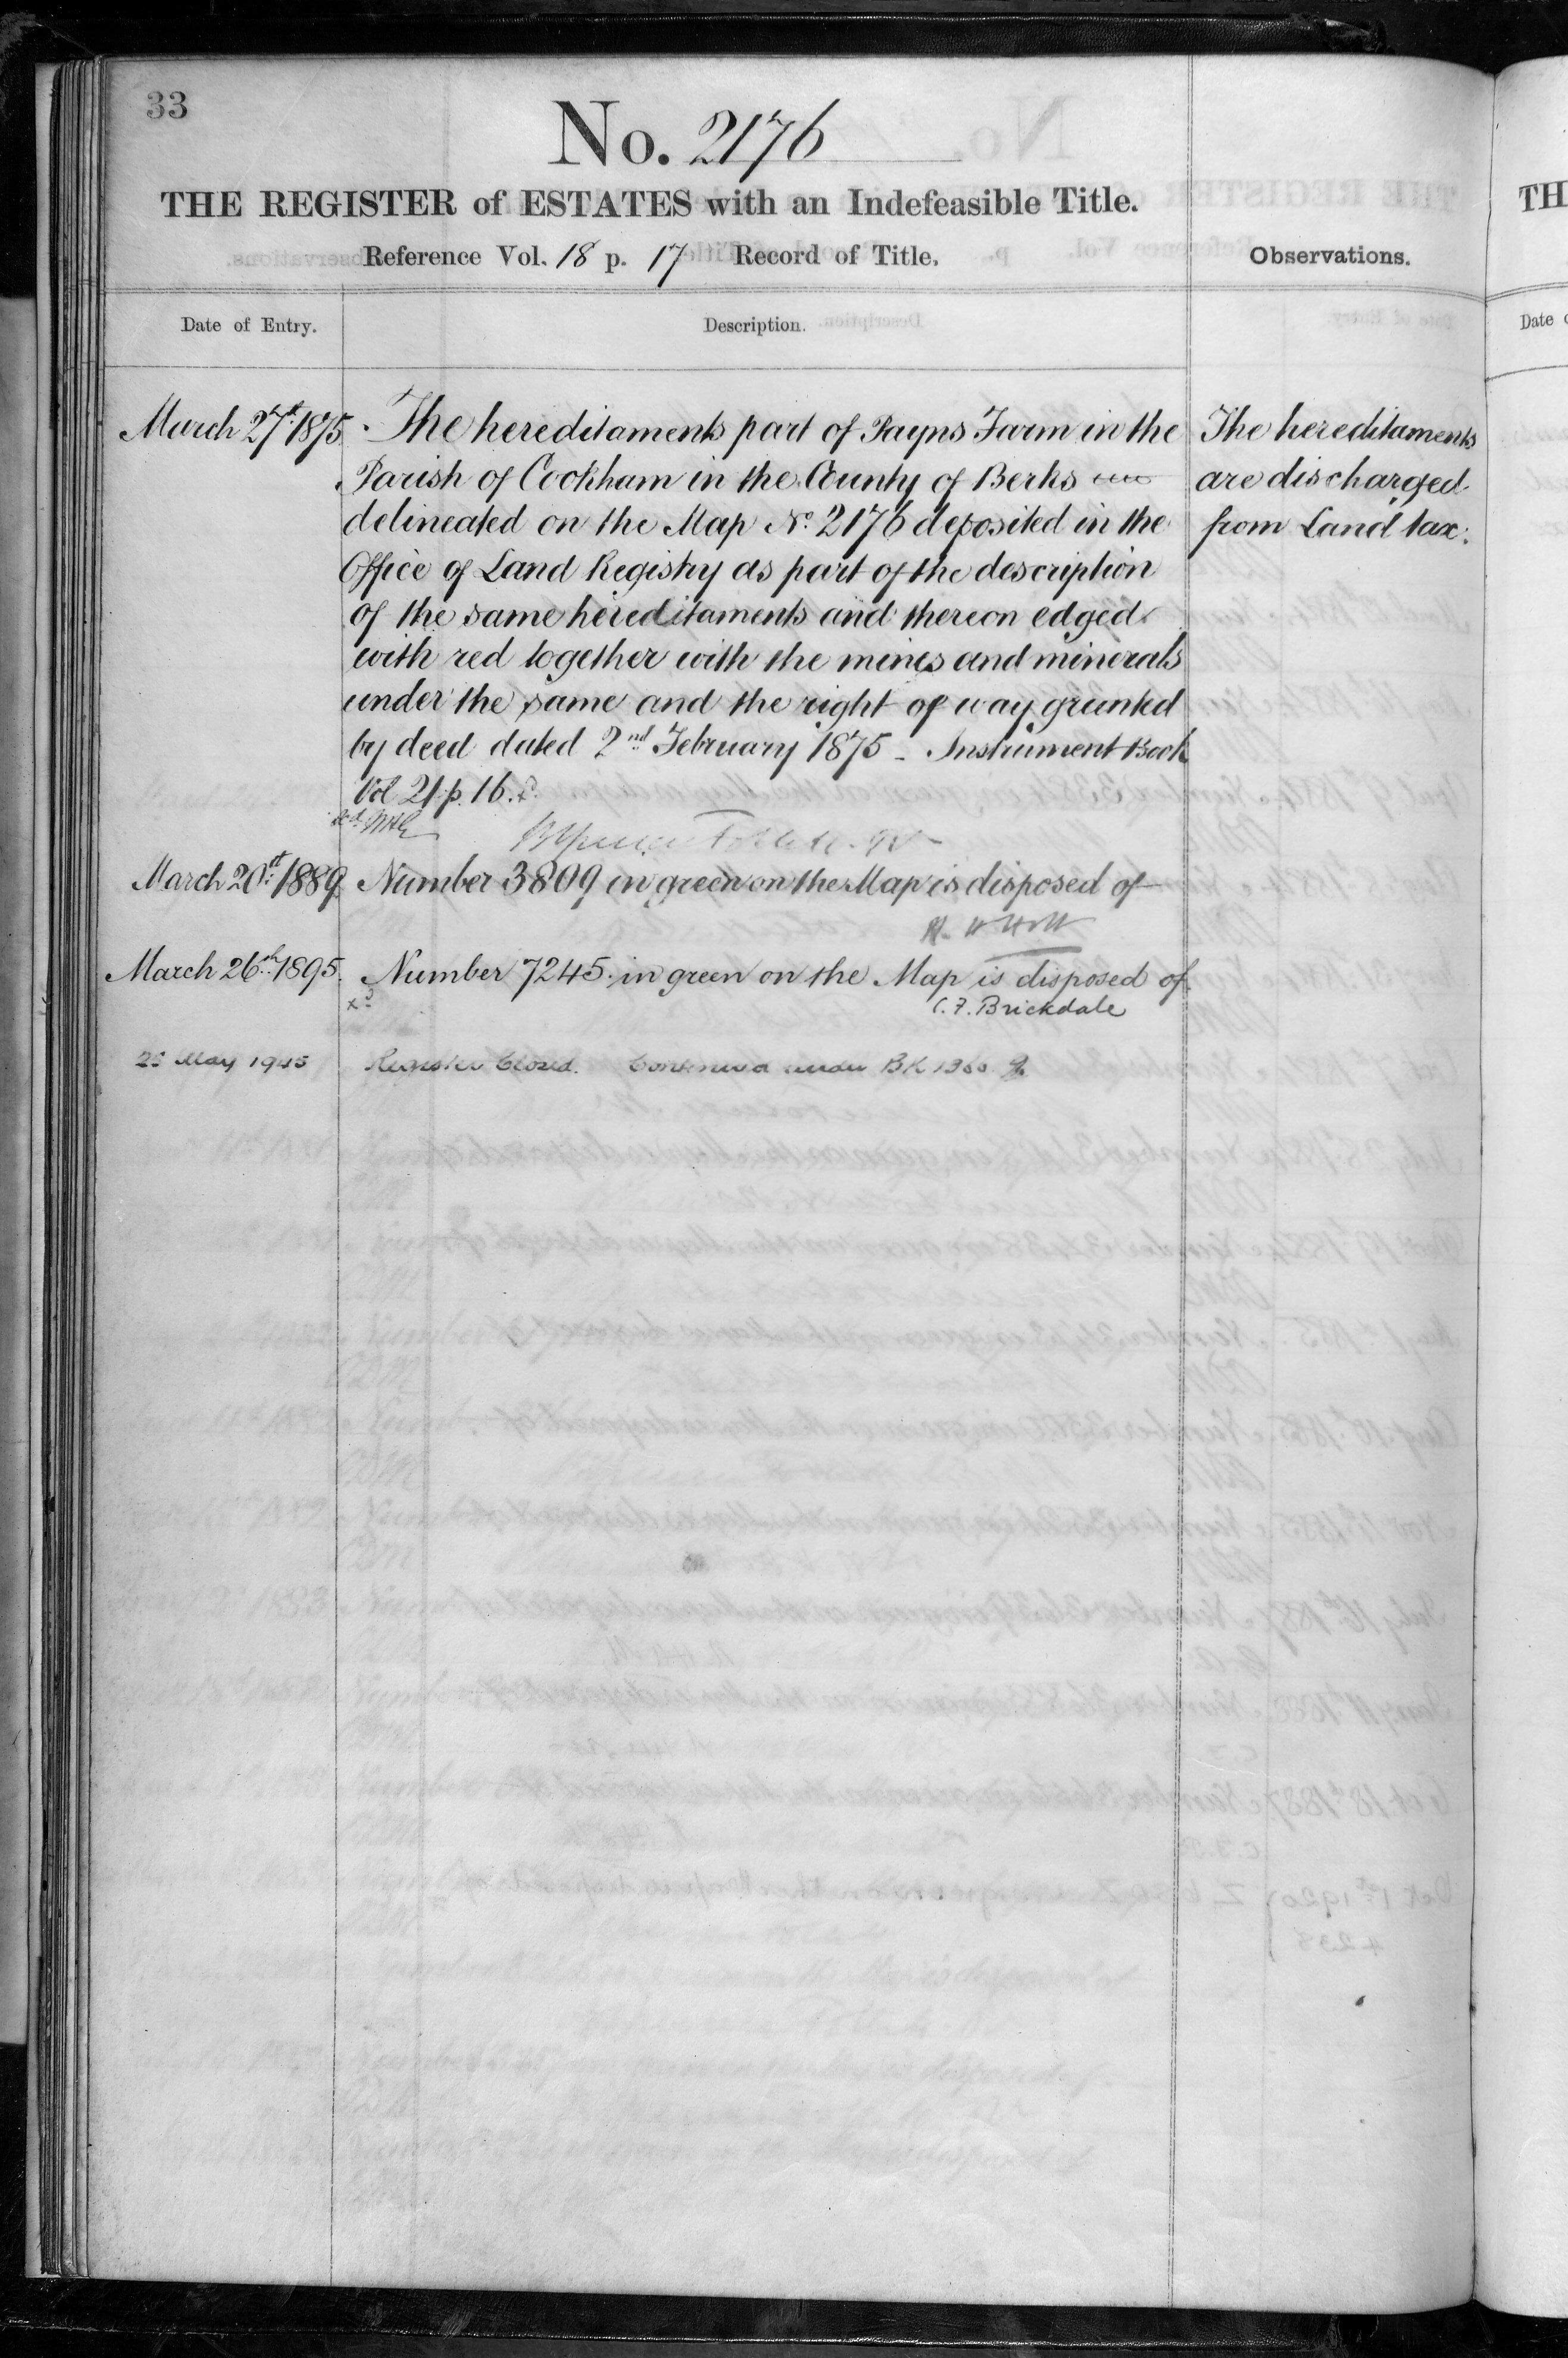 33
No. 2176
THE REGISTER of ESTATES with an Indefeasible Title.
Reference Vol. 18 p. 17 Record of Title.
Observations.
Date of Entry.
Description.
March 27th 1875
The hereditaments part of Payns Farm in the
Parish of Cookham in the County of Berks
delineated on the Map No. 2176 deposited in the
Office of Land Registry as part of the description
of the same hereditaments and thereon edged
with red together with the mines and minerals
under the same and the right of way granted
by deed dated 2nd February 1875 - Instrument Book
Vol 21 p. 16.
The hereditaments
are discharged
from Land tax.
March 20th 1889. Number 3809 in green on the Map is disposed of
March 26th 1895. Number 7245 in green on the Map is disposed of
C. F. Brickdale
May 1945 Register Closed. Continued under BK 1360
TH
Date